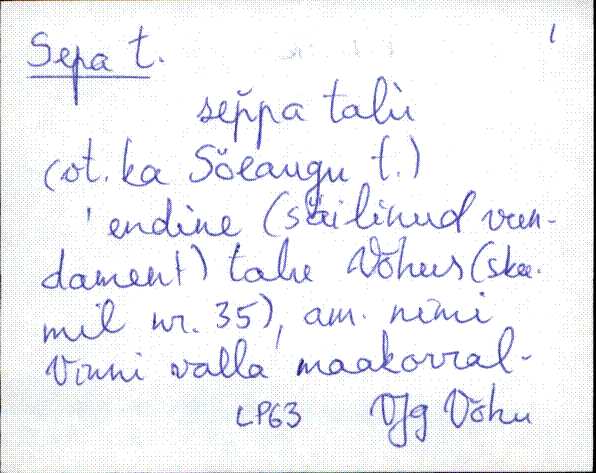 Sepa t. 1
sep̆pa talù
(vt. ka Sõeaugu t.)
' endine (säilinud vun-
dament) talu Võhus (skee-
mil nr. 35)', am. nimi
Vinni valla maakorral-
LP63 VJg Võhu